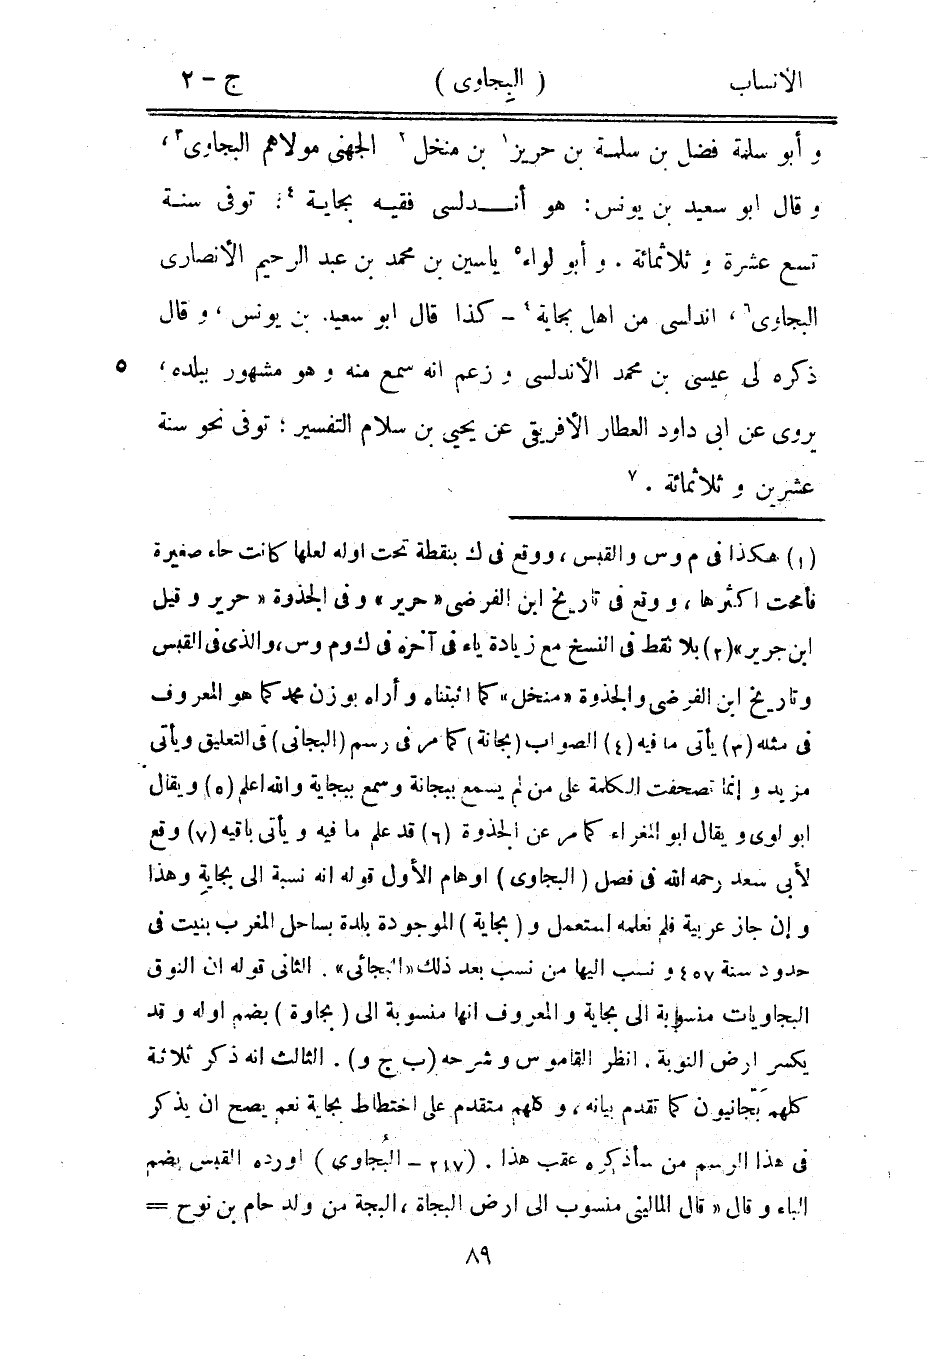 الأنساب ( البجاوى ) ج - ٢
و أبو سلمة فضل بن سلمة بن حريز١ بن منخل٢ الجهنى مولاهم البجاوى٣،
و قال ابو سعيد بن يونس: هو أندلسى فقيه بجاية٤؛ توفى سنة
تسع عشرة و ثلاثمائة . و أبو لواء٥ ياسين بن محمد بن عبد الرحيم الأنصارى
البجاوى٦، اندلسى من اهل بجاية٤ - كذا قال ابو سعيد بن يونس، و قال
ذكره لى عيسى بن محمد الأندلسى و زعم انه سمع منه و هو مشهور ببلده، ٥
يروى عن ابى داود العطار الأفريقى عن يحيى بن سلام التفسير؛ توفى نحو سنة
عشرين و ثلاثمائة .٧
(١) هكذا فى م وس والقبس، ووقع فى ك بنقطة تحت اوله لعلها كانت حاء صغيرة
فأمحت اكثرها، ووقع فى تاريخ ابن الفرضى «حرير» وفى الجذوة «حرير و قيل
ابن جرير» (٢) بلا نقط فى النسخ مع زيادة ياء فى آخره فى ك وم وس، والذى فى القبس
وتاريخ ابن الفرضى والجذوة «منخل» كما اثبتناه و أراه بوزن محمد كما هو المعروف
فى مثله (٣) يأتى ما فيه (٤) الصواب (بجانة) كما مر فى رسم (البجانى) فى التعليق ويأتى
مزيد و إنما تصحفت الكلمة على من لم يسمع ببجانة وسمع ببجاية والله اعلم (٥) ويقال
ابو لوى و يقال ابو المغراء كما مر عن الجذوة (٦) قد علم ما فيه و يأتى باقيه (٧) وقع
لأبى سعد رحمه الله فى فصل (البجاوى) اوهام الأول قوله انه نسبة الى بجاية وهذا
و إن جاز عربية فلم نعلمه استعمل و (بجاية) الموجودة بلدة بساحل المغرب بنيت فى
حدود سنة ٤٥٧ و نسب اليها من نسب بعد ذلك «البجائى» . الثانى قوله ان النوق
البجاويات منسوبة الى بجاية و المعروف انها منسوبة الى (بجاوة) بضم اوله و قد
يكسر ارض النوبة . انظر القاموس و شرحه (ب ج و) . الثالث انه ذكر ثلاثة
كلهم بَجّانيون كما تقدم بيانه، و كلهم متقدم على اختطاط بجاية نعم يصح ان يذكر
فى هذا الرسم من سأذكره عقب هذا . (٢١٧ - البُجاوى) اورده القبس بضم
الباء و قال «قال المالينى منسوب الى ارض البجاة، البجة من ولد حام بن نوح =
٨٩